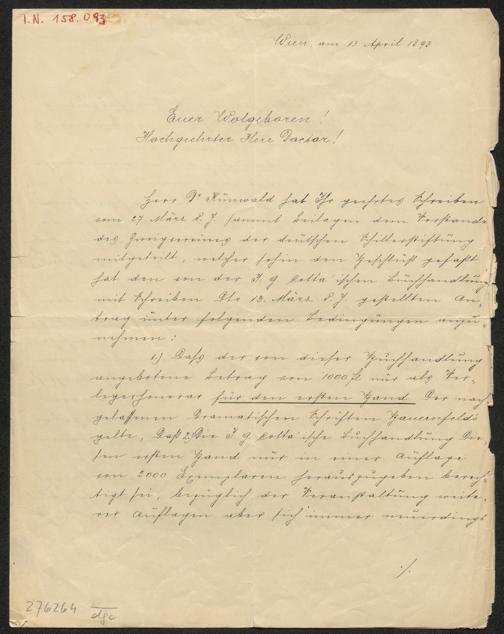 I.N. 158.093
Wien, am 13 April 1893
Euer Wolgeboren!
Hochgeehrter Herr Doctor!
Herr Dr Kunwald hat Ihr geehrtes Schreiben
vom 27 März d. J. sammt Beilagen dem Vorstande
des Zweigvereines der deutschen Schillerstiftung
mitgeteilt, welcher sohin den Beschluß gefaßt
hat den von der J. G. Cotta'ischen Buchhandlung
mit Schreiben Dto 12. März d. J. gestellten An-
trag unter folgenden Bedingungen anzu-
nehmen:
1.) Daß der von dieser Buchhandlung
angebotene Betrag von 1000 fl nur als Ver-
legerhonorar für den ersten Band der nach-
gelassenen Dramatischen Schriften Bauernfelds
gelte, Daß 2) Die J. G. Cotta'ische Buchhandlung Die-
sen ersten Band nur in einer Auflage
von 2000 Exemplaren herauszugeben berech-
tigt sei, bezüglich der Veranstaltung weite-
rer Auflagen aber sich immer neuerdings
./.
276264
dgc